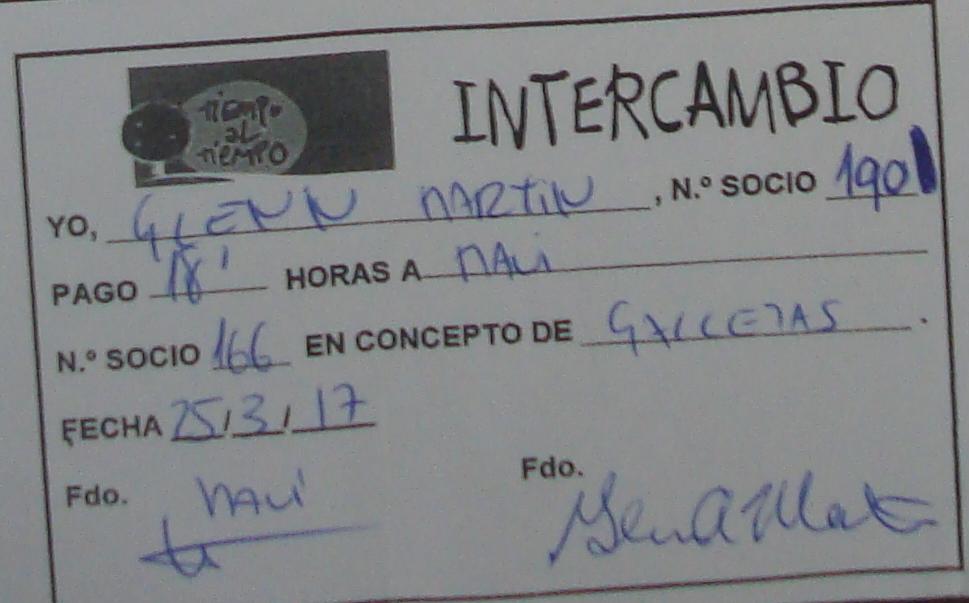 tiempo
al
tiempo
INTERCAMBIO
YO, GLENN MARTIN, N.º SOCIO 190
PAGO 18' HORAS A MALI
N.º SOCIO 166 EN CONCEPTO DE GALLETAS.
FECHA 25/3/17
Fdo. MALI Fdo.